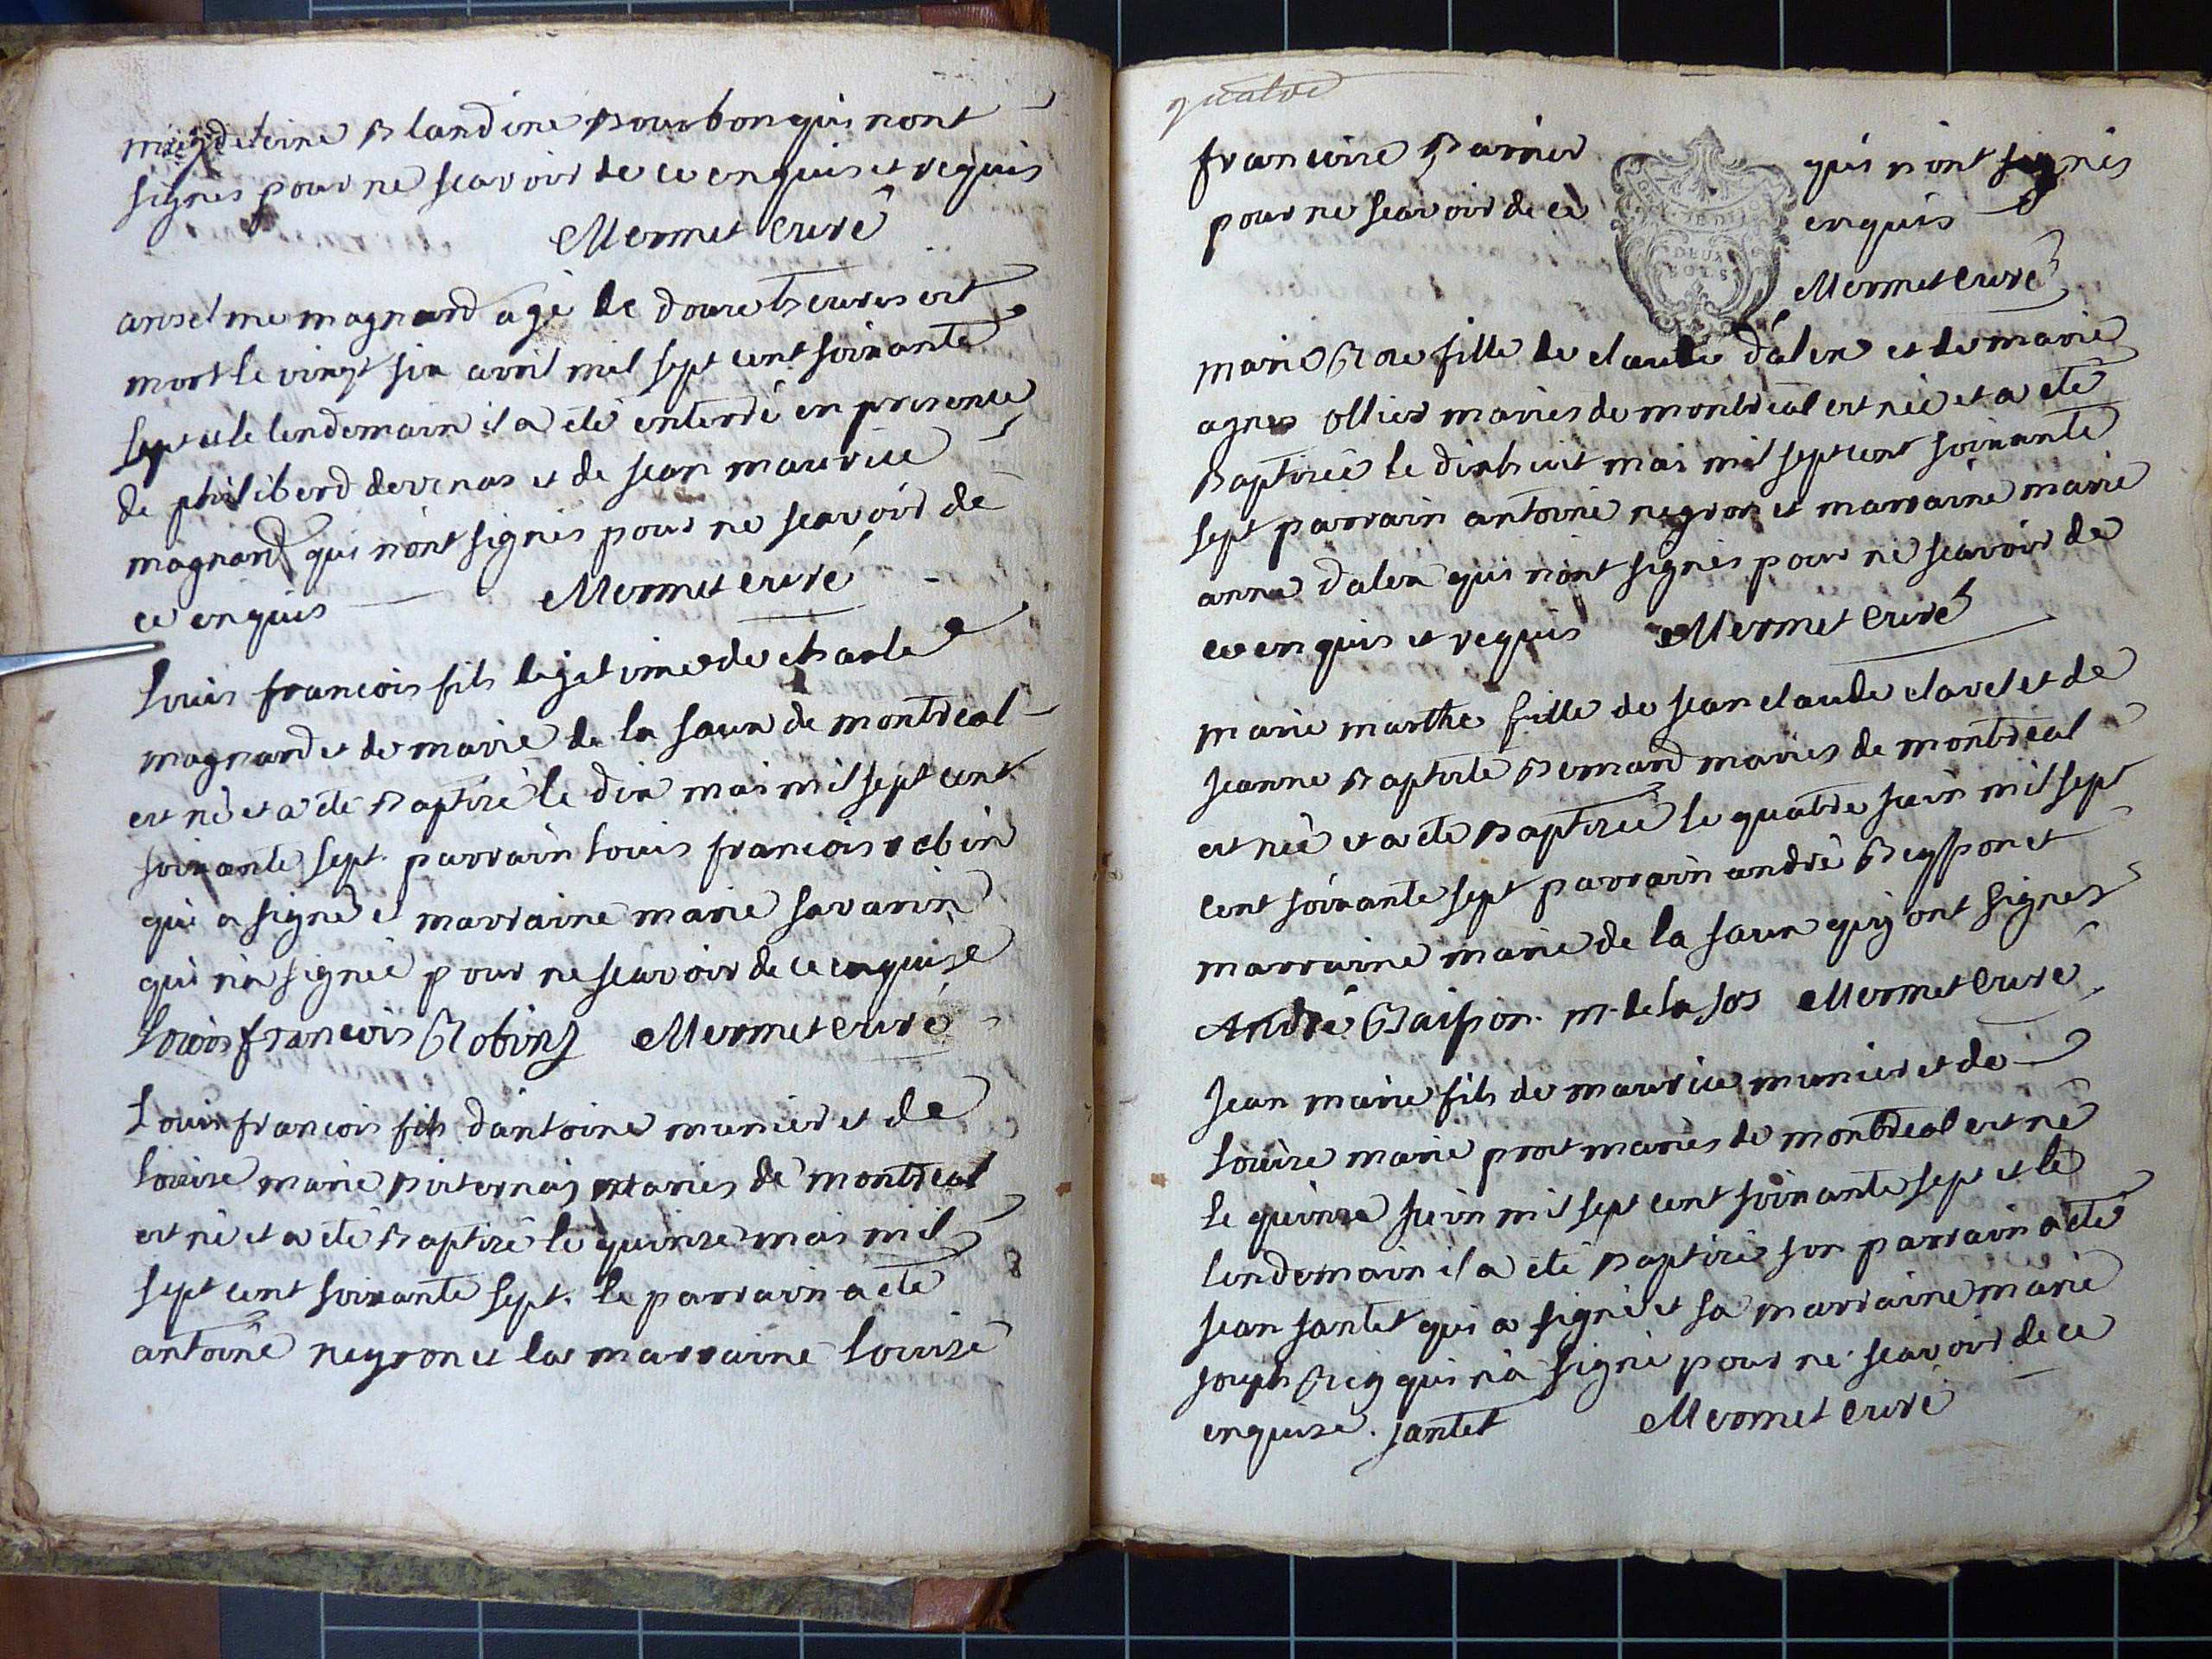 Blandine Bourbon qui nont
signes pour ne scavoir de ce enquis et requis
Mermet curé
anselme magnard agé de douze heures est
mort le vingt six avril mil sept cent soixante
sept et le lendemain il a été enterré en presence
de philiberd devenas et de jean maurice
magnard qui n'ont signés pour ne scavoir de
ce enquis Mermet curé
Louis francois fils legetime de charle
magnard et de marie de la saux de montreal
est né et a été Baptisé le dix mai mil sept cent
soixante sept. parrain Louis francois robin
qui a signé et marraine marie savarin
qui n'a signée pour ne scavoir de ce enquise
Louis francois Robin Mermet curé
Louis francois fils dantoine munier et de
Louise marie mariés de montreal
est né et a été Baptisé le quinze mai mil
sept cent soixante sept. le parrain a été
antoine negron et la marraine Louise
quatre
francoise qui n'ont signés
pour ne scavoir de ce enquis
DEUX
SOLS
Mermet curé
marie Rose fille de claude d'alex et de marie
agnes ollier mariés de montreal est née et a été
Baptisée le dixhuit mai mil sept cent soixante
sept parrain antoine negron et marraine marie
anne d'alex qui n'ont signés pour ne scavoir de
ce enquis et requis Mermet curé
marie marthe fille de jean claude clavel et de
jeanne Baptiste Bernard mariés de montreal
est née et a été Baptisée le quatre juin mil sept
cent soixante sept parrain andré Beysson et
marraine marie de la saux qui ont signes
André Baisson. m. de la sos Mermet curé
jean marie fils de maurice munier et de
Louise marie prost mariés de montreal est né
le quinze juin mil sept cent soixante sept et le
lendemain il a été Baptisé son parrain a été
jean jantet qui a signé et sa marraine marie
joseph Rey qui n'a signé pour ne scavoir de ce
enquise. jantet Mermet curé